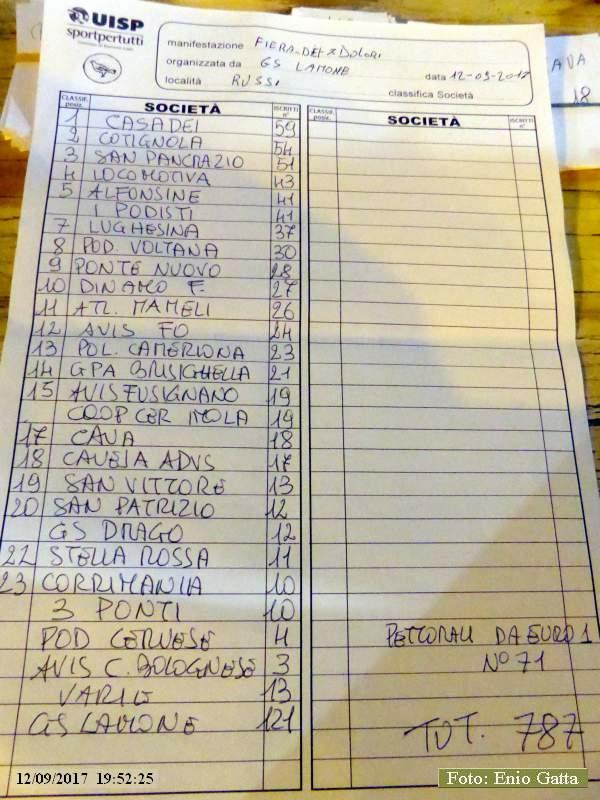 UISP
sportpertutti
manifestazione FIERA DEI 7 DOLORI
organizzata da GS LAMONE
località RUSSI
data 12-09-2017
classifica Società
AVA
18
CLASSIF. posiz. SOCIETÀ ISCRITTI n°
1 CASADEI 59
2 COTIGNOLA 54
3 SAN PANCRAZIO 51
4 LOCOMOTIVA 43
5 ALFONSINE 41
I PODISTI 41
7 LUGHESINA 37
8 POD. VOLTANA 30
9 PONTE NUOVO 28
10 DINAMO F. 27
11 ATL. MAMELI 26
12 AVIS FO 24
13 POL. CAMERLONA 23
14 GPA BRISIGHELLA 21
15 AVIS FUSIGNANO 19
COOP CER IMOLA 19
17 CAVA 18
18 CAVEJA ADVS 17
19 SAN VITTORE 13
20 SAN PATRIZIO 12
GS DRAGO 12
22 STELLA ROSSA 11
23 CORRIMANIA 10
3 PONTI 10
POD CERVESE 4
AVIS C. BOLOGNESE 3
VARIE 13
GS LAMONE 121
CLASSIF. posiz. SOCIETÀ ISCRITTI n°
PETTORALI DA EURO 1
N° 71
TOT. 787
12/09/2017 19:52:25
Foto: Enio Gatta